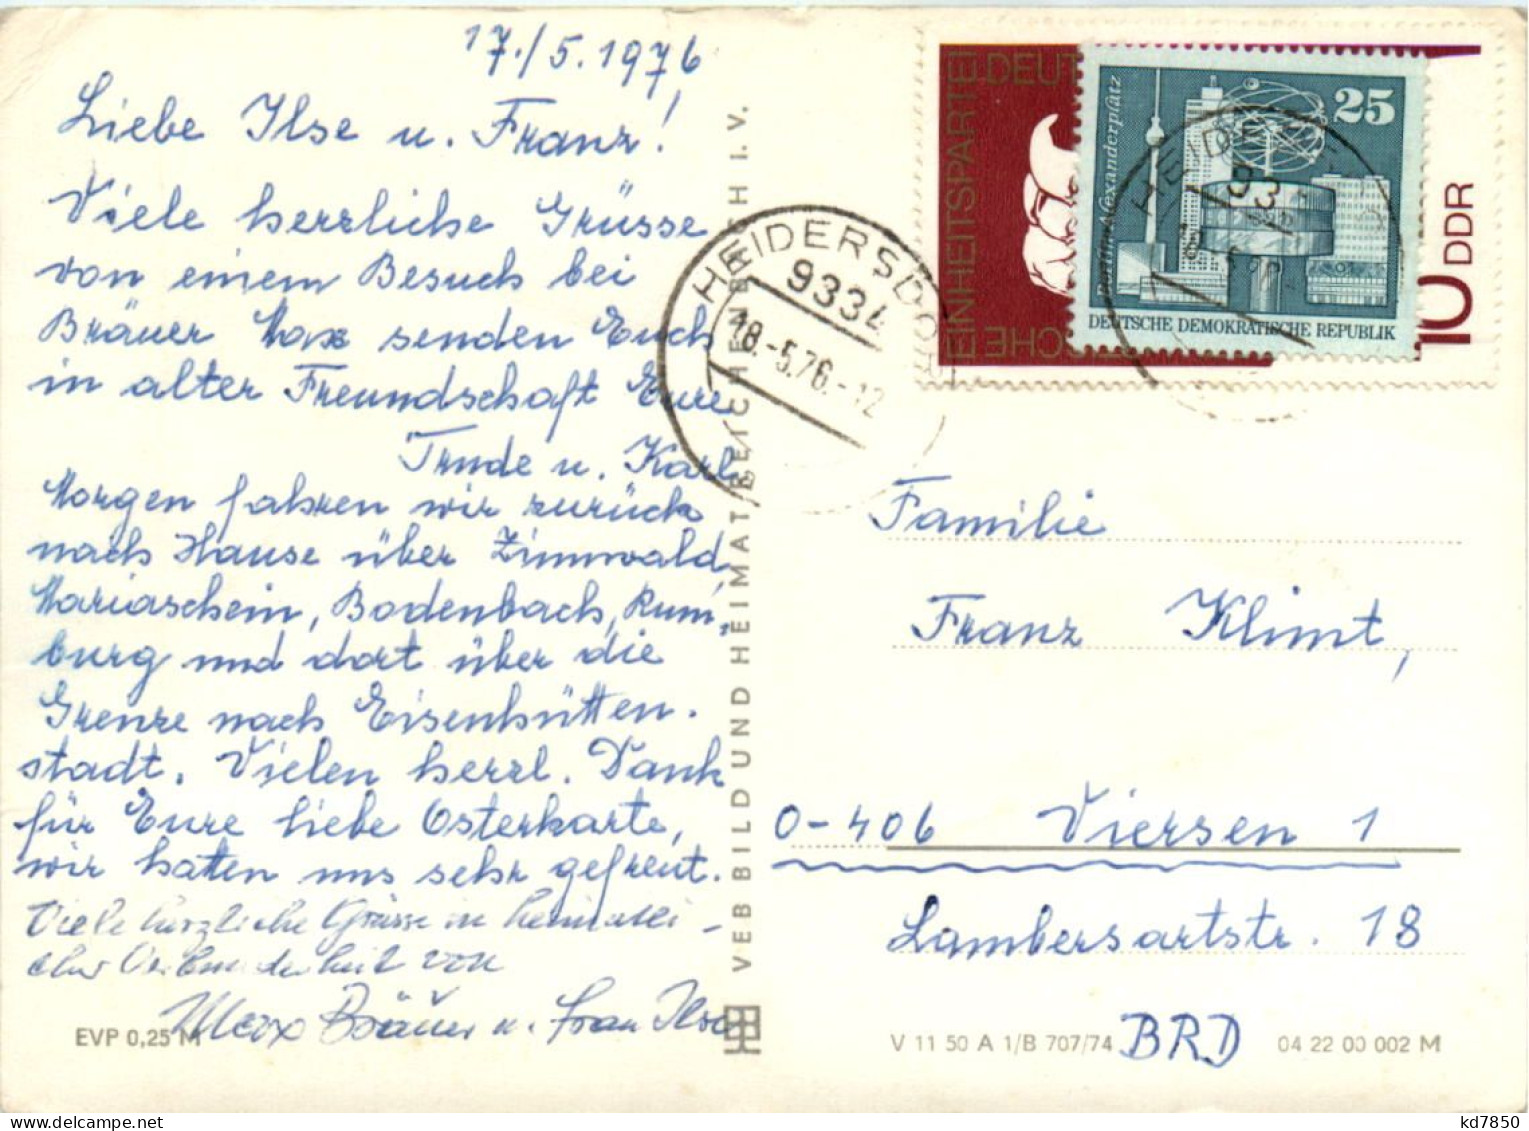 17./5.1976
Liebe Ilse u. Franz!
Viele herzliche Grüsse
von einem Besuch bei
Bräuer Max senden Euch
in alter Freundschaft Eure
Trude u. Karl
Morgen fahren wir zurück
nach Hause über Zinnwald,
Mariaschein, Bodenbach, Rum-
burg und dort über die
Grenze nach Eisenhütten-
stadt. Vielen herzl. Dank
für Eure liebe Osterkarte,
wir hatten uns sehr gefreut.
Viele herzliche Grüsse in heimatli-
cher Verbundenheit von
Max Bräuer u. Frau Ilse
EVP 0,25 M
VEB BILD UND HEIMAT REICHENBACH I. V.
HEIDERSDORF
9334
18.-5.76.-12
EINHEITSPARTEI DEUT
SCHE
10 DDR
25
Berlin·Alexanderplatz
DEUTSCHE DEMOKRATISCHE REPUBLIK
HEIDE
93
18
Familie
Franz Klimt,
O-406 Viersen 1
Lambersartstr. 18
BRD
V 11 50 A 1/B 707/74 04 22 00 002 M
kd7850